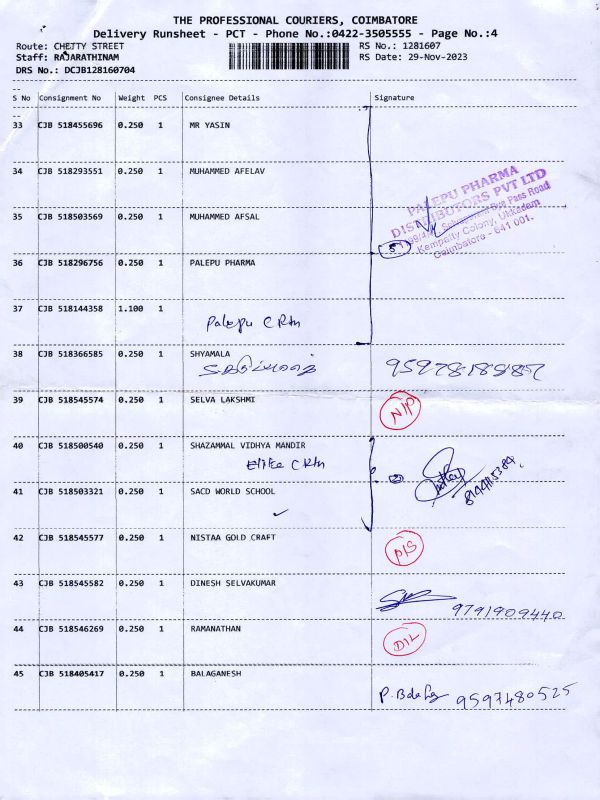 THE PROFESSIONAL COURIERS, COIMBATORE
Delivery Runsheet - PCT - Phone No.:0422-3505555 - Page No.:4
Route: CHETTY STREET
RS No.: 1281607
Staff: RAJARATHINAM
RS Date: 29-Nov-2023
DRS No.: DCJB128160704
S No Consignment No Weight PCS Consignee Details Signature
33 CJB 518455696 0.250 1 MR YASIN
34 CJB 518293551 0.250 1 MUHAMMED AFELAV
PALEPU PHARMA
DISTRIBUTORS PVT LTD
Pass Road
Kempatty Colony, Ukkadam
Coimbatore - 641 001.
35 CJB 518503569 0.250 1 MUHAMMED AFSAL
5
36 CJB 518296756 0.250 1 PALEPU PHARMA
37 CJB 518144358 1.100 1
Palepu C Rtn
38 CJB 518366585 0.250 1 SHYAMALA
39 CJB 518545574 0.250 1 SELVA LAKSHMI
N/P
40 CJB 518500540 0.250 1 SHAZAMMAL VIDHYA MANDIR
Elite C Rtn
2
41 CJB 518503321 0.250 1 SACD WORLD SCHOOL
42 CJB 518545577 0.250 1 NISTAA GOLD CRAFT
43 CJB 518545582 0.250 1 DINESH SELVAKUMAR
9791909440
44 CJB 518546269 0.250 1 RAMANATHAN
D/L
45 CJB 518405417 0.250 1 BALAGANESH
9597480525